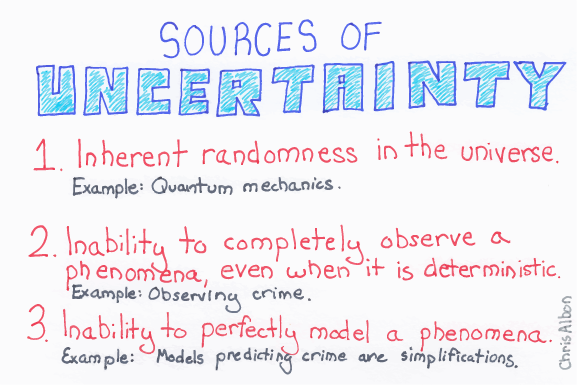 SOURCES OF
UNCERTAINTY
1. Inherent randomness in the universe.
Example: Quantum mechanics.
2. Inability to completely observe a
phenomena, even when it is deterministic.
Example: Observing crime.
3. Inability to perfectly model a phenomena.
Example: Models predicting crime are simplifications.
Chris Albon